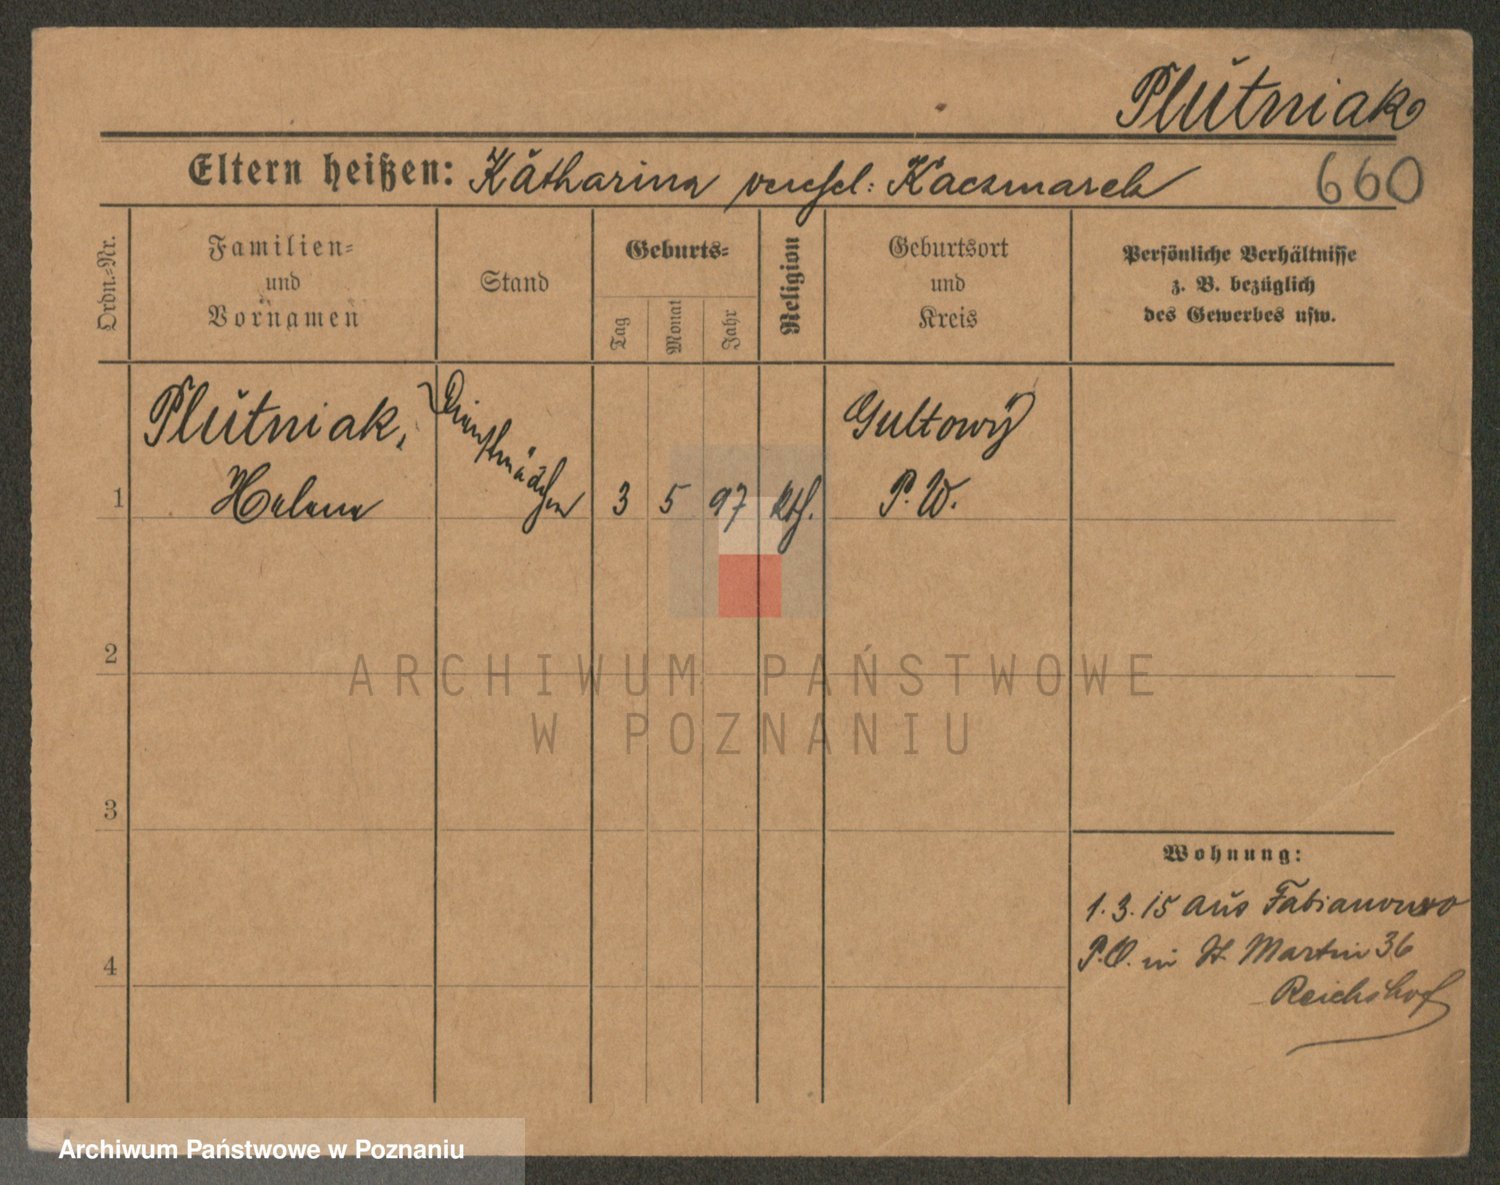 Plutniak
Eltern heißen: Katharina verehel: Kaczmarek 660
Ordn.-Nr.
Familien-
und
Vornamen
Stand
Geburts-
Tag
Monat
Jahr
Religion
Geburtsort
und
Kreis
Persönliche Verhältnisse
z. B. bezüglich
des Gewerbes usw.
1
Plutniak,
Helena
Dienstmädchen
3 5 97 kth.
Gultowy
P. W.
2
3
4
Wohnung:
1. 3. 15 aus Fabianowo
P. O. in St. Martin 36
Reichshof
ARCHIWUM PAŃSTWOWE
W POZNANIU
Archiwum Państwowe w Poznaniu